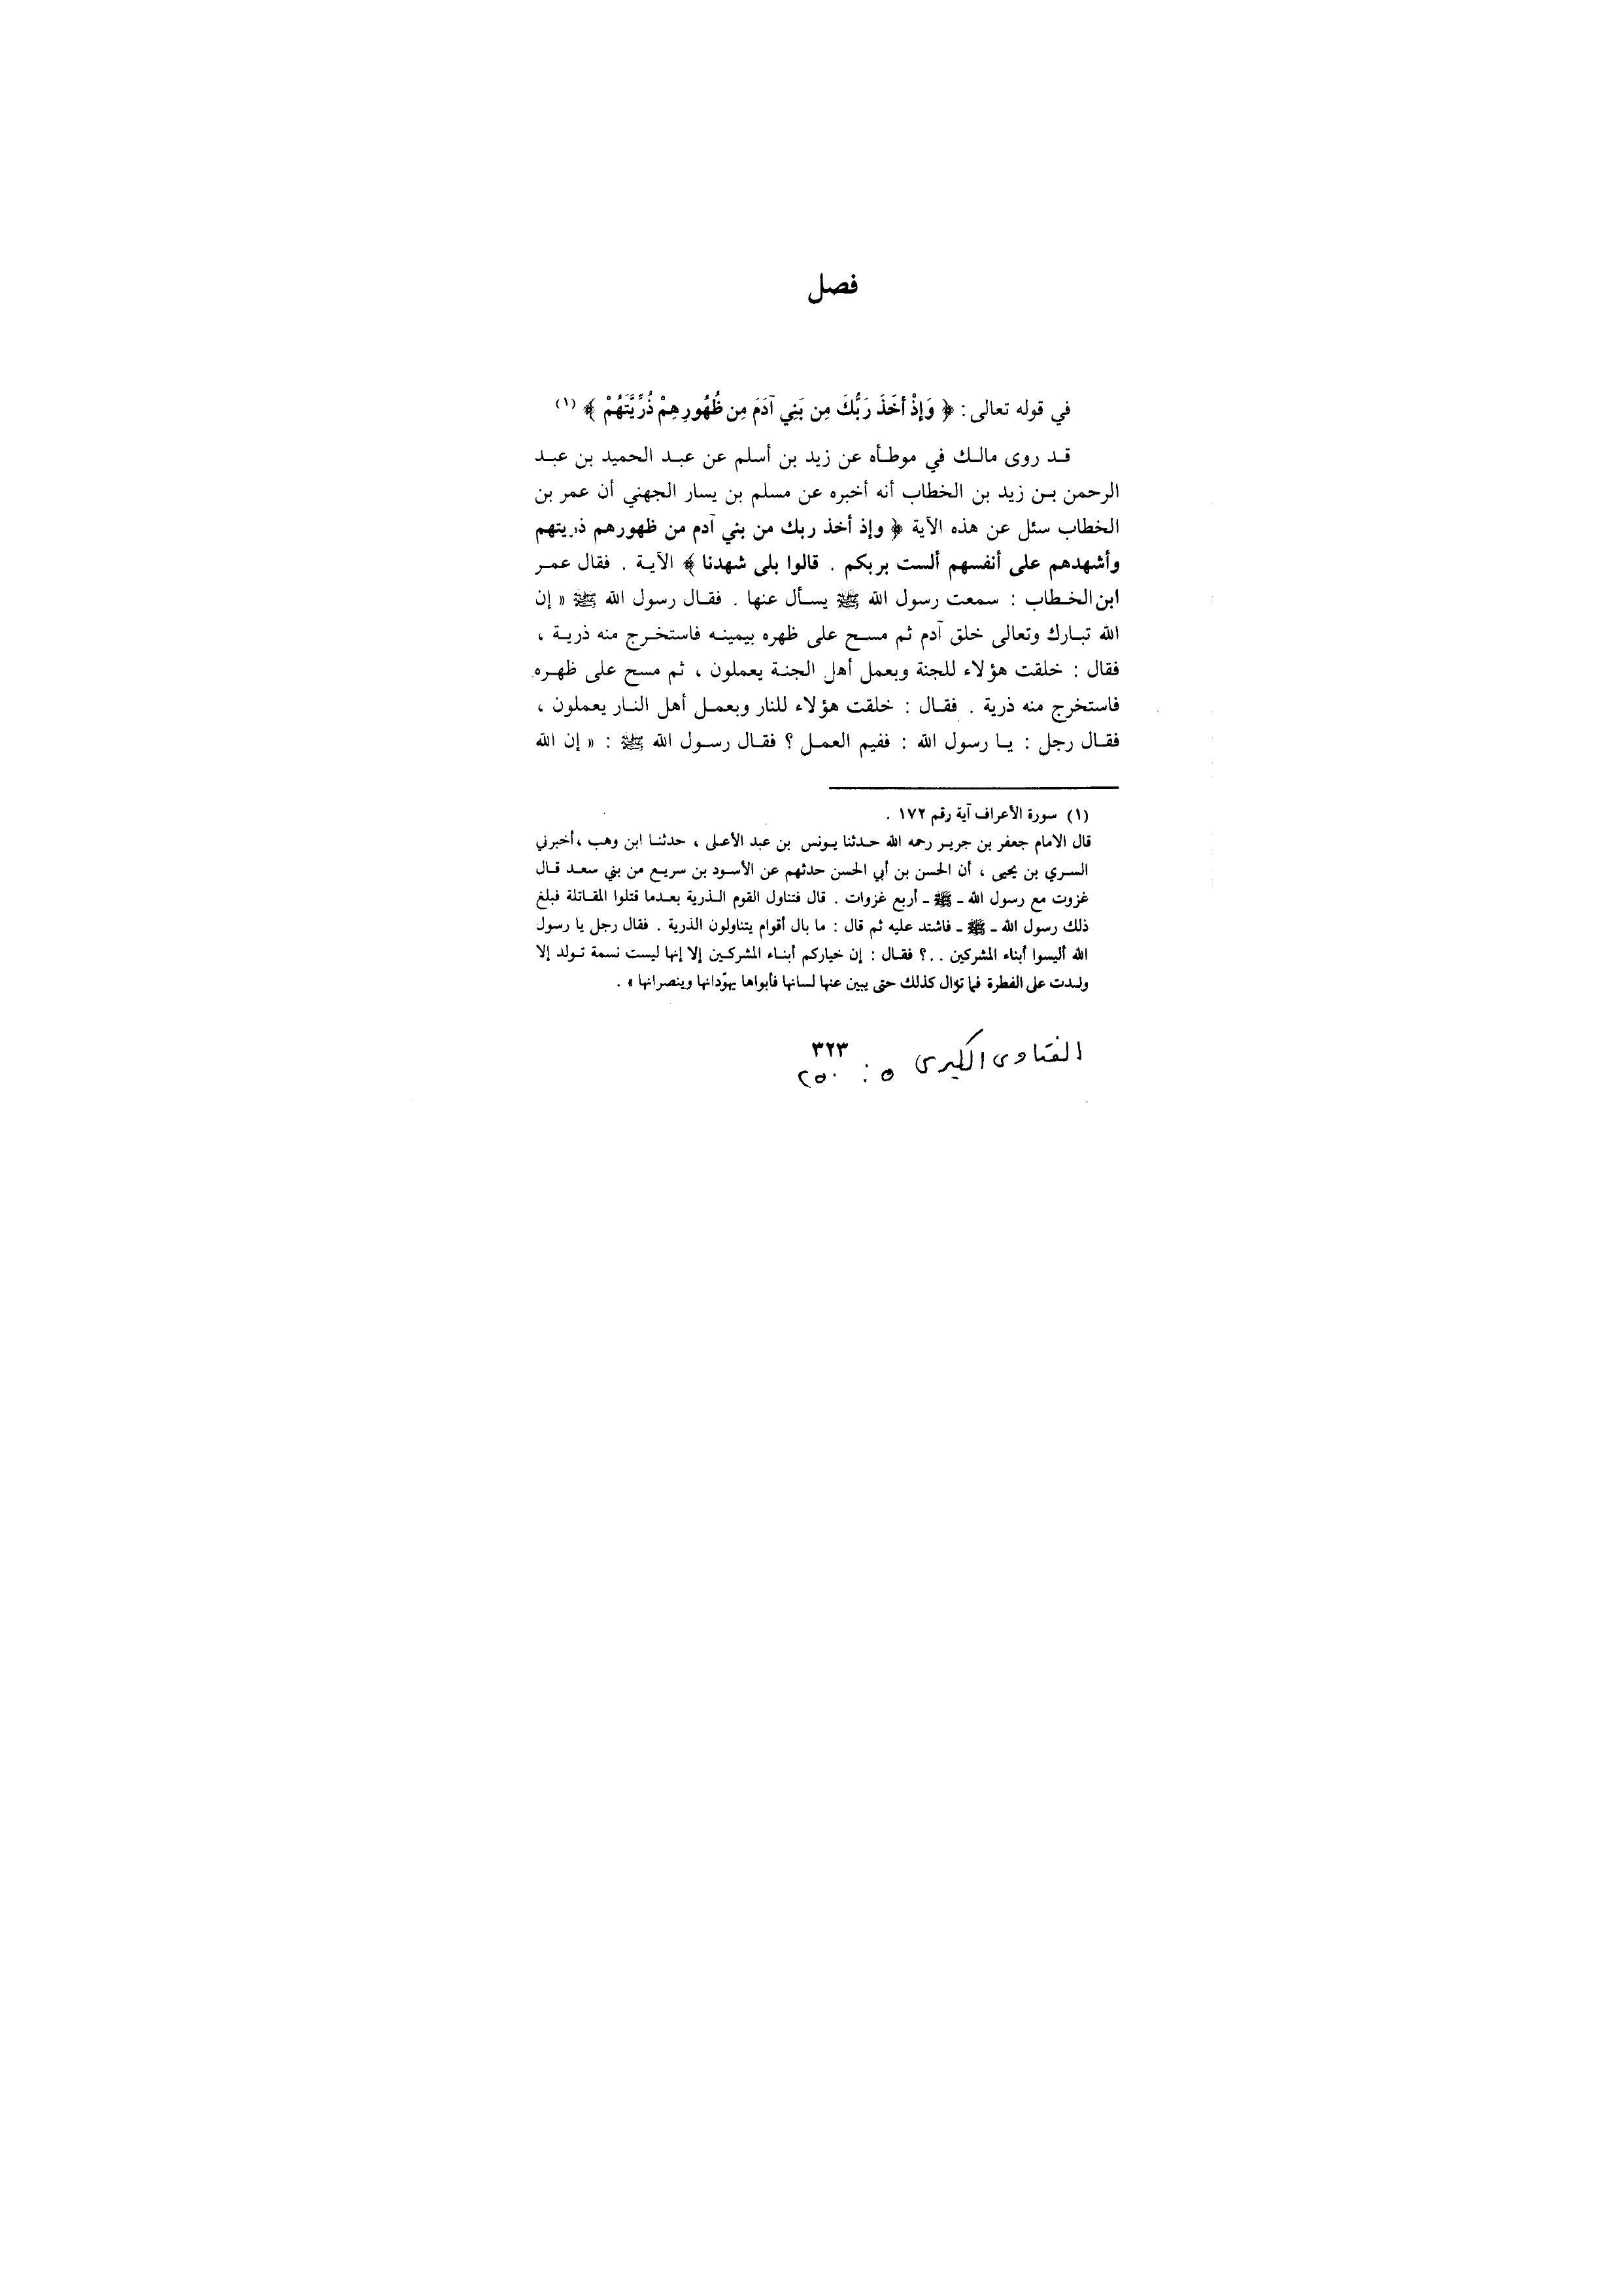 فصل
في قوله تعالى : ﴿ وَإِذْ أَخَذَ رَبُّكَ مِن بَنِي آدَمَ مِن ظُهُورِهِمْ ذُرِّيَّتَهُمْ ﴾ (١)
قد روى مالك في موطأه عن زيد بن أسلم عن عبد الحميد بن عبد
الرحمن بن زيد بن الخطاب أنه أخبره عن مسلم بن يسار الجهني أن عمر بن
الخطاب سئل عن هذه الآية ﴿ وإذ أخذ ربك من بني آدم من ظهورهم ذريتهم
وأشهدهم على أنفسهم ألست بربكم . قالوا بلى شهدنا ﴾ الآية . فقال عمر
ابن الخطاب : سمعت رسول الله ﷺ يسأل عنها . فقال رسول الله ﷺ « إن
الله تبارك وتعالى خلق آدم ثم مسح على ظهره بيمينه فاستخرج منه ذرية ،
فقال : خلقت هؤلاء للجنة وبعمل أهل الجنة يعملون ، ثم مسح على ظهره
فاستخرج منه ذرية . فقال : خلقت هؤلاء للنار وبعمل أهل النار يعملون ،
فقال رجل : يا رسول الله : ففيم العمل ؟ فقال رسول الله ﷺ : « إن الله
(١) سورة الأعراف آية رقم ١٧٢ .
قال الامام جعفر بن جرير رحمه الله حدثنا يونس بن عبد الأعلى ، حدثنا ابن وهب ، أخبرني
السري بن يحيى ، أن الحسن بن أبي الحسن حدثهم عن الأسود بن سريع من بني سعد قال
غزوت مع رسول الله ـ ﷺ ـ أربع غزوات . قال فتناول القوم الذرية بعدما قتلوا المقاتلة فبلغ
ذلك رسول الله ـ ﷺ ـ فاشتد عليه ثم قال : ما بال أقوام يتناولون الذرية . فقال رجل يا رسول
الله أليسوا أبناء المشركين . . ؟ فقال : إن خياركم أبناء المشركين إلا إنها ليست نسمة تولد إلا
ولدت على الفطرة فما تزال كذلك حتى يبين عنها لسانها فأبواها يهوّدانها وينصرانها » .
٣٢٣
الفتاوى الكبرى ٥ : ٢٥٠